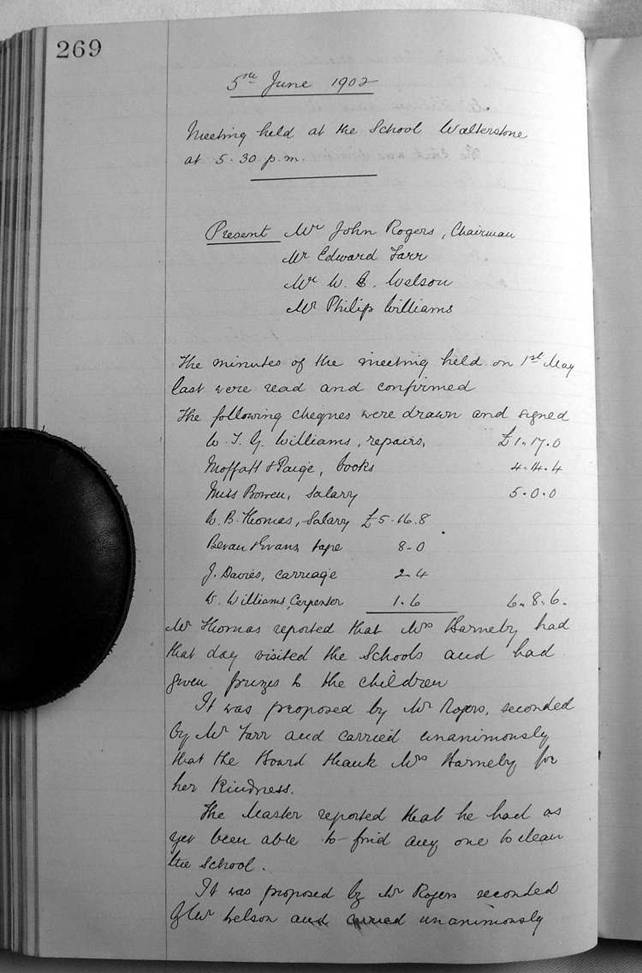 269
5th June 1902
Meeting held at the School Walterstone
at 5.30 p.m.
Present Mr John Rogers, Chairman
Mr Edward Farr
Mr W. E. Welson
Mr Philip Williams
The minutes of the meeting held on 1st May
last were read and confirmed
The following cheques were drawn and signed
W. T. G. Williams, repairs, £1.17.0
Moffatt & Paige, books 4.4.4
Miss Bowen, Salary 5.0.0
W. B. Thomas, Salary £5.16.8
Bevan & Evans tape 8-0
J. Davies, carriage 2-4
W. Williams, Carpenter 1.6 6.8.6.
Mr Thomas reported that Mrs Barneby had
that day visited the Schools and had
given prizes to the children
It was proposed by Mr Rogers, seconded
by Mr Farr and carried unanimously
that the Board thank Mrs Barneby for
her kindness.
The Master reported that he had as
yet been able to find any one to clean
the School.
It was proposed by Mr Rogers seconded
by Mr Welson and carried unanimously